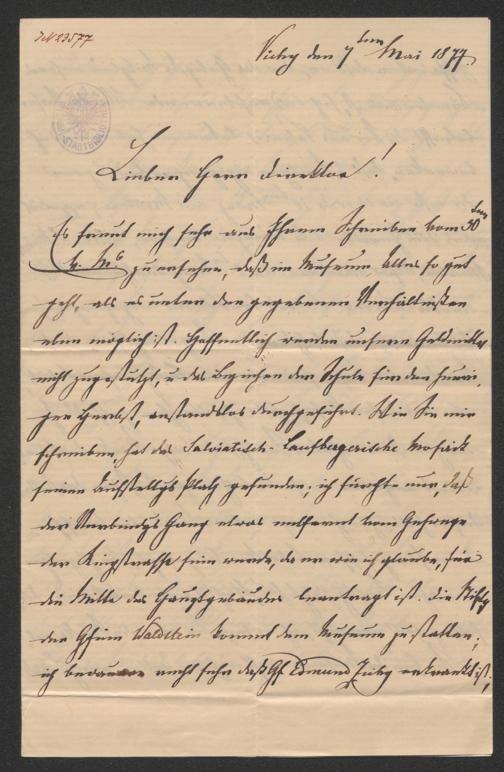 JN 23577
Vichy den 7ten Mai 1877.
Lieber Herr Direktor!
Es freut mich sehr aus Ihrem Schreiben vom 30ten
v. Mts zu ersehen, daß im Museum Alles so gut
geht, als es unter den gegebenen Verhältnißen
eben möglich ist. Hoffentlich werden unsere Geldmittel
nicht zugestutzt, u das Beziehen der Schule für den heuri-
gen Herbst, anstandslos durchgeführt. Wie Sie mir
schreiben, hat das Salviatisch-Laufbergerische Mosaik
seinen Aufstellgs Platz gefunden; ich fürchte nur, daß
der Verbindgs Gang etwas entfernt vom Gehwege
der Ringstrasse sein werde, da er wie ich glaube, für
die Mitte des Hauptgebäudes beantragt ist. Die
der Gfein Waldstein kommt dem Museum zu statten;
ich bedauere recht sehr daß Gf Edmund Zichy erkrankt ist,